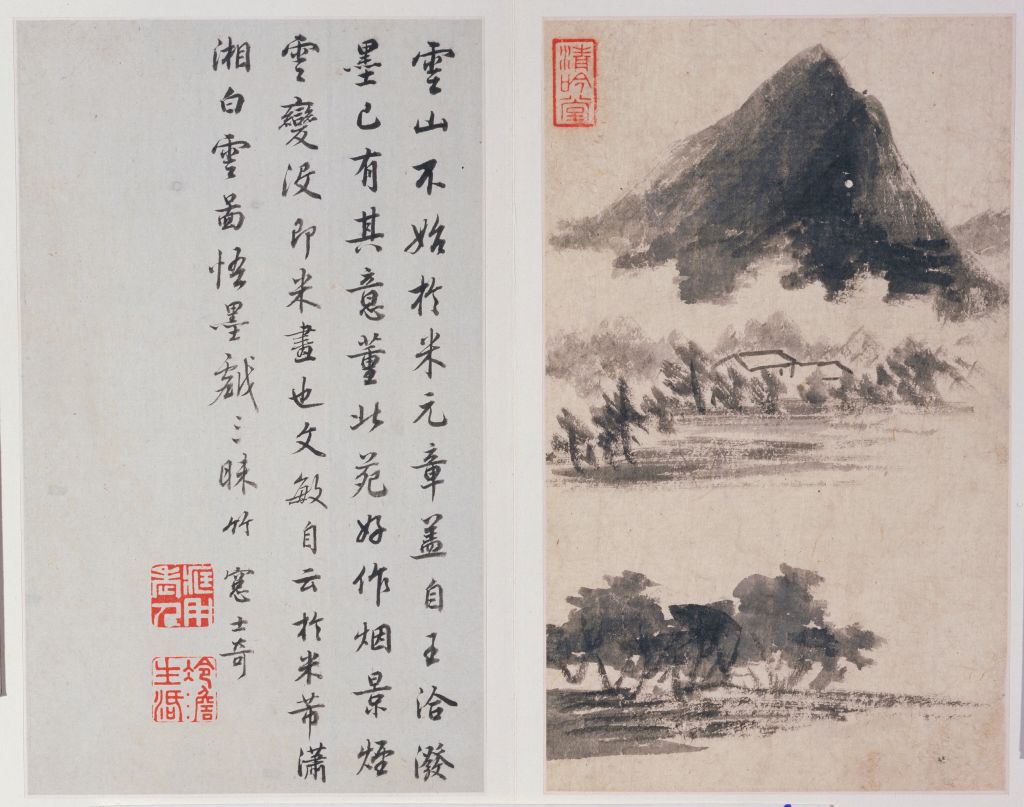 清吟堂
雲山不始扵米元章盖自王洽潑
墨已有其意董北苑好作烟景煙
雲變没即米畫也文敏自云扵米芾瀟
湘白雲啚悟墨戲三昧竹窓士奇
藏用老人
冷澹生活